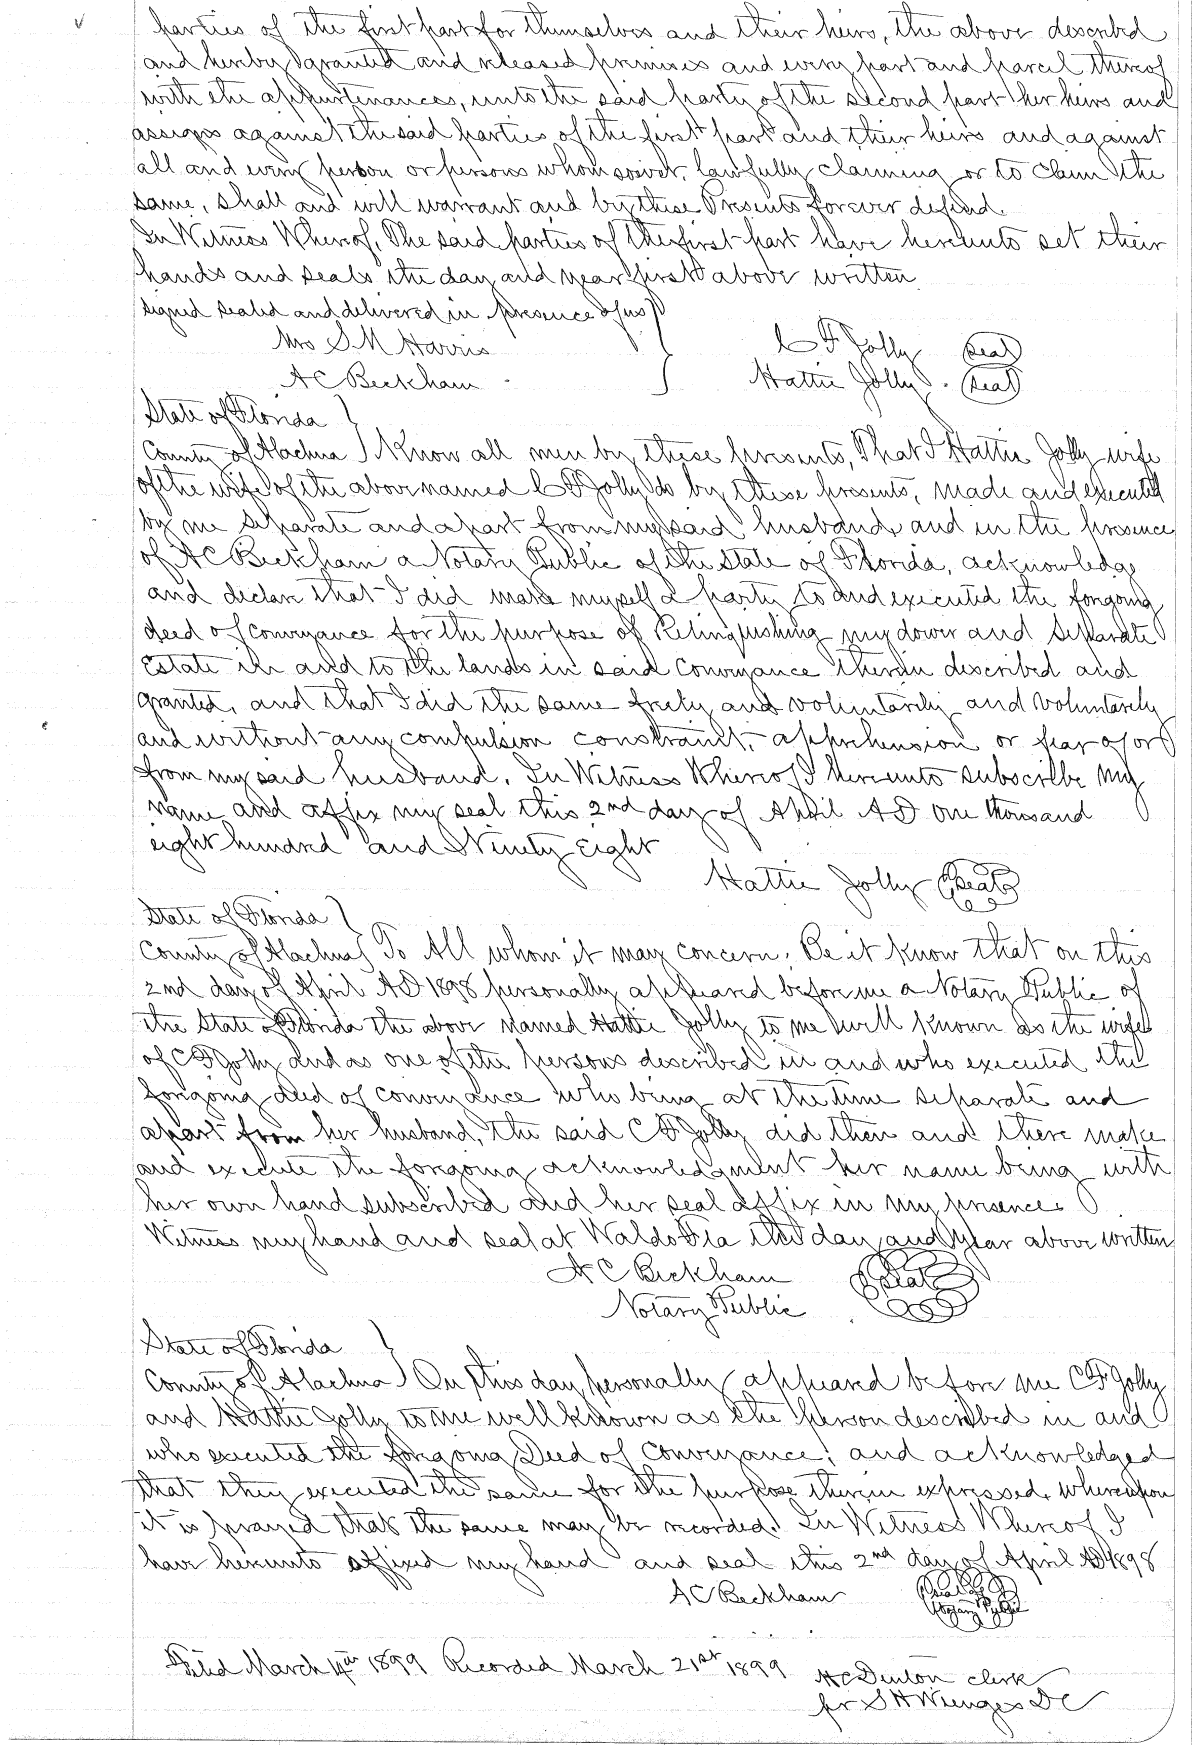 parties of the first part for themselves and their heirs, the above described
and hereby granted and released premises and every part and parcel thereof
with the appurtenances, unto the said party of the second part her heirs and
assigns against the said parties of the first part and their heirs and against
all and every person or persons whomsoever, lawfully claiming or to claim the
same, shall and will warrant and by these Presents forever defend.
In Witness Whereof, The said parties of the first part have hereunto set their
hands and seals the day and year first above written
signed sealed and delivered in presence of us }
Mrs S M Harris } C F Jolly (seal)
A C Beckham } Hattie Jolly. (seal)
State of Florida }
County of Alachua } Know all men by these presents, That I Hattie Jolly wife
of the wife of the above named C F Jolly do by these presents, made and executed
by me separate and apart from my said husband, and in the presence
of A C Beckham a Notary Public of the State of Florida, acknowledge
and declare that I did make myself a party to and executed the forgoing
deed of conveyance for the purpose of Relinquishing my dower and separate
Estate in and to the lands in said conveyance therein described and
granted, and that I did the same freely and voluntarily and voluntarily
and without any compulsion constraint, apprehension or fear of or
from my said husband. In Witness Whereof I hereunto subscribe my
name and affix my seal this 2nd day of April AD one thousand
eight hundred and Ninety Eight
Hattie Jolly (seal)
State of Florida }
County of Alachua } To All whom it may concern; Be it know that on this
2nd day of April AD 1898 personally appeared before me a Notary Public of
the State of Florida the above named Hattie Jolly to me well known as the wife
of C F Jolly and as one of the persons described in and who executed the
forgoing deed of conveyance who being at the time separate and
apart from her husband, the said C F Jolly did then and there make
and execute the forgoing acknowledgment her name being with
her own hand subscribed and her seal affix in my presence
Witness my hand and seal at Waldo Fla the day and year above written
A C Beckham (seal)
Notary Public
State of Florida }
County of Alachua } On this day personally appeared before me C F Jolly
and Hattie Jolly to me well known as the person described in and
who executed the forgoing Deed of Conveyance; and acknowledged
that they executed the same for the purpose therein expressed, whereupon
it is prayed that the same may be recorded. In Witness Whereof I
have hereunto affixed my hand and seal this 2nd day of April AD 1898
A C Beckham
Notary Public
Filed March 14th 1899 Recorded March 21st 1899 H C Denton clerk
pr S H Wienges D C